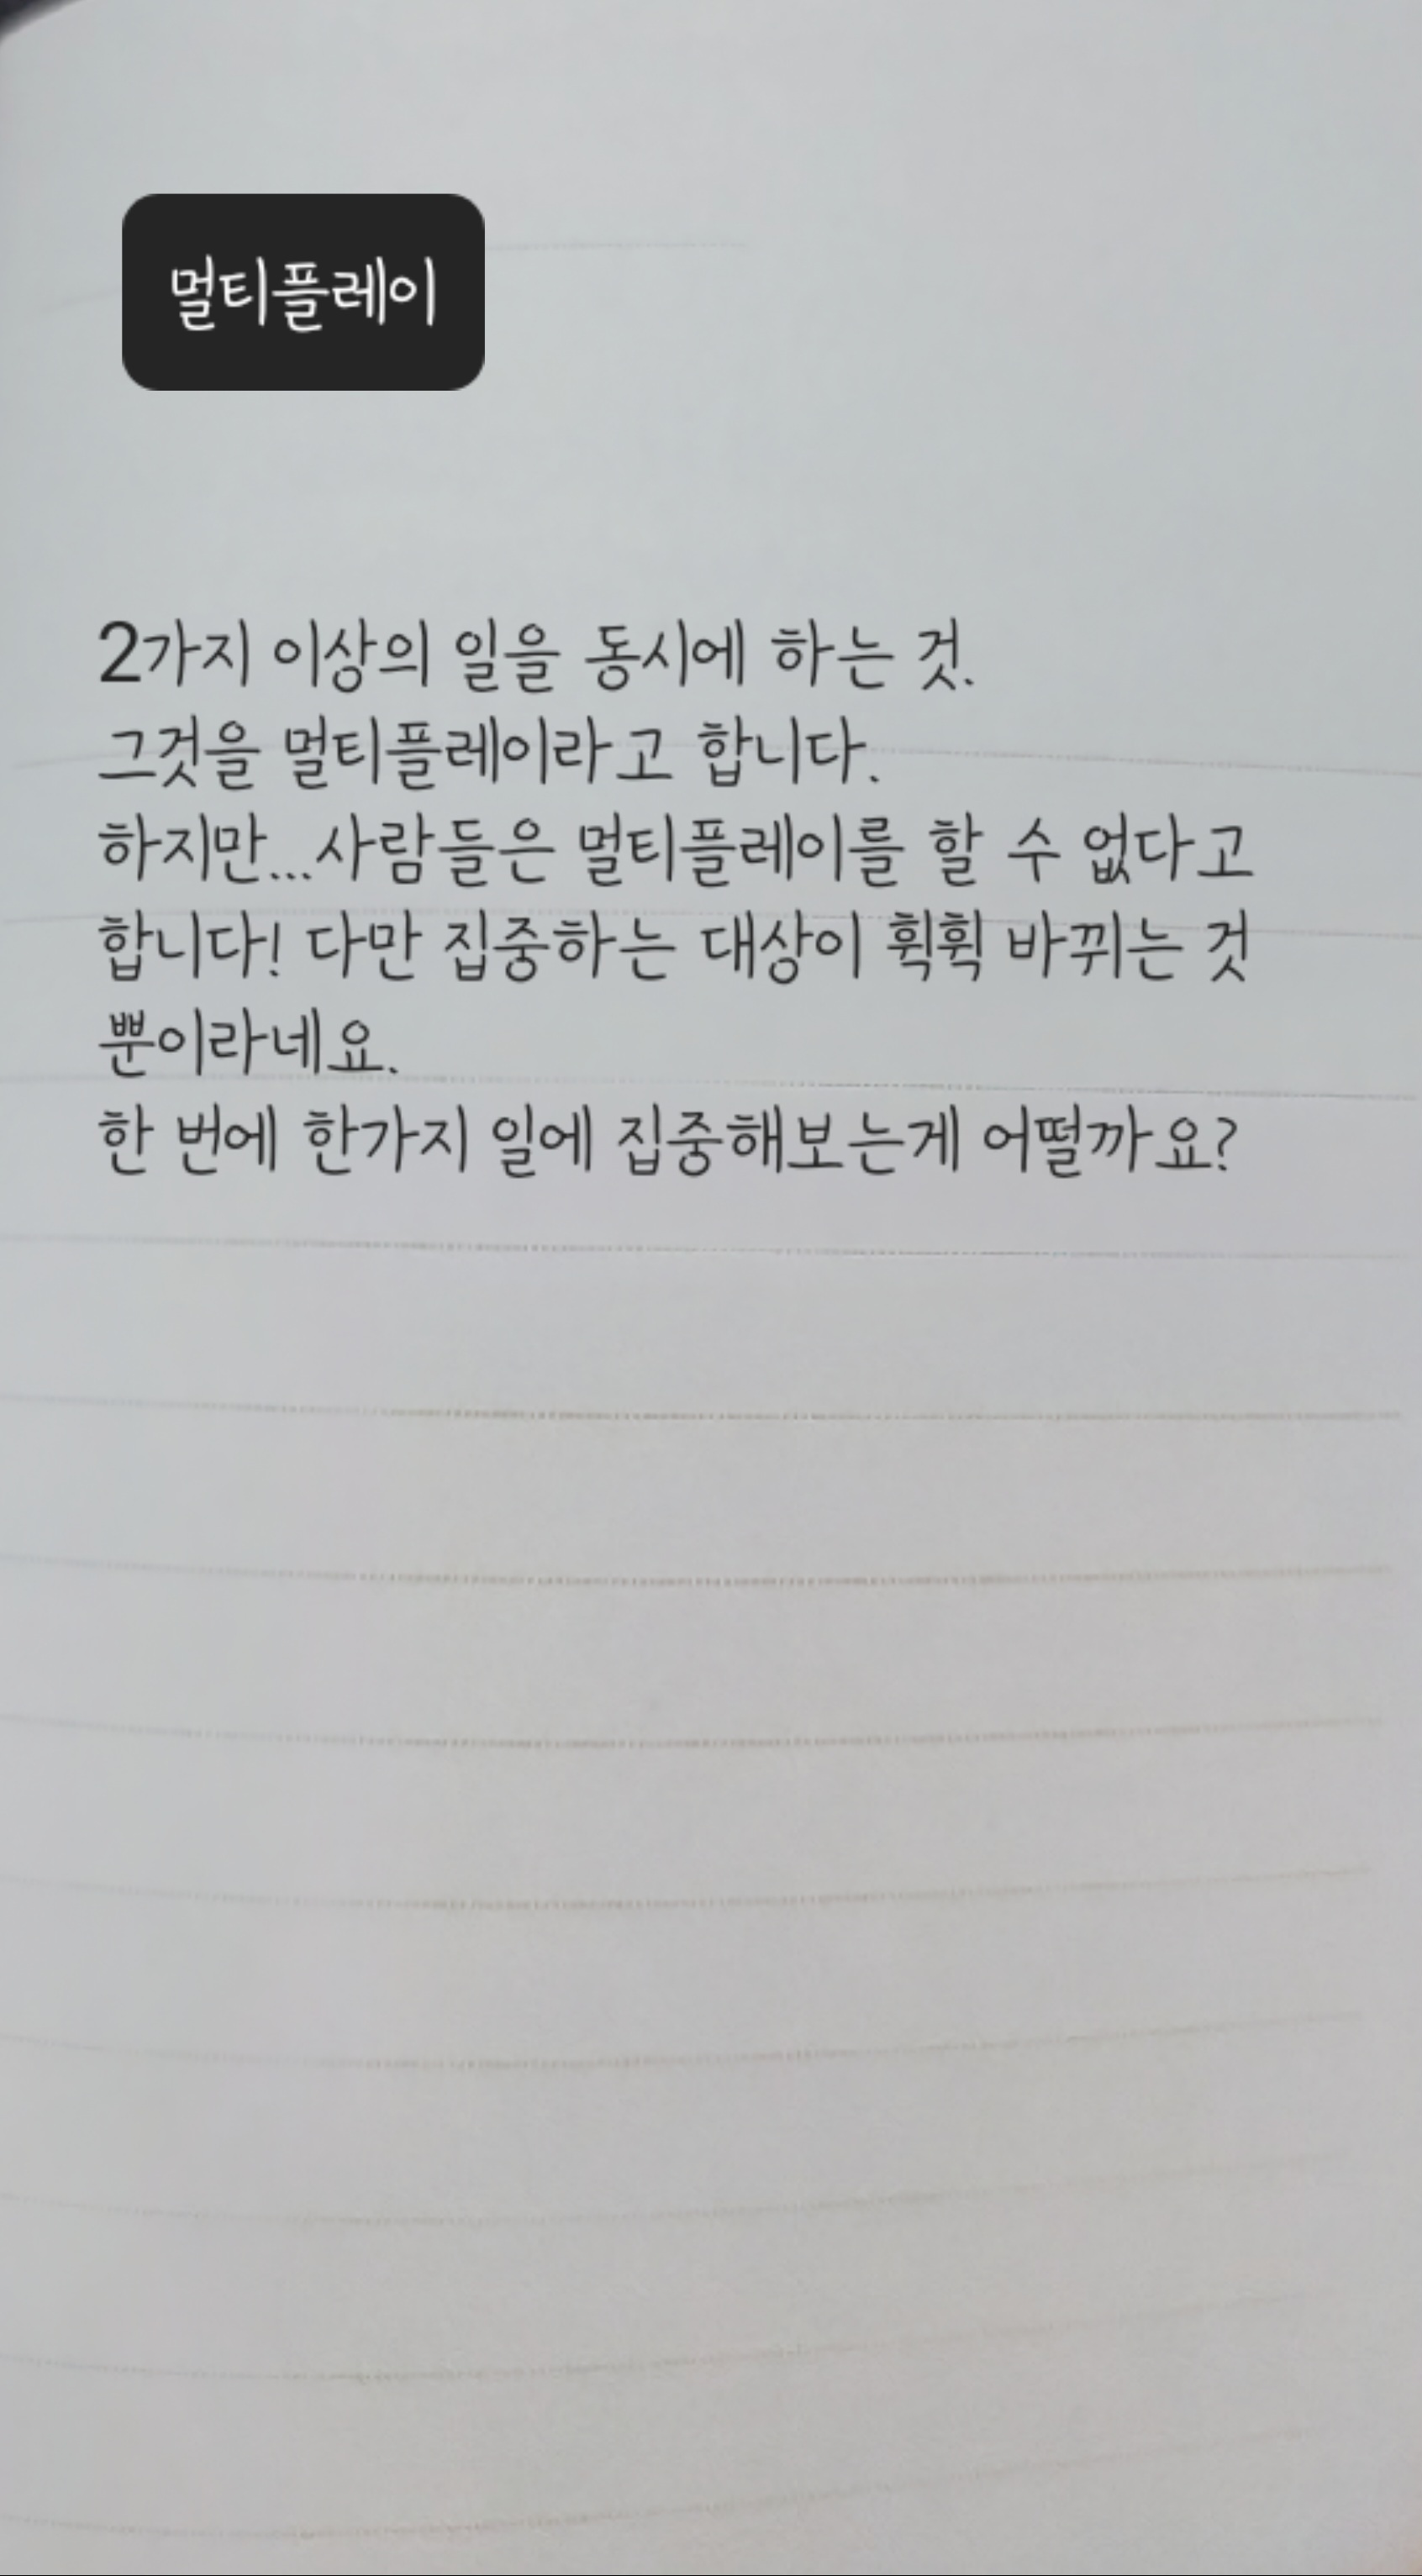 멀티플레이
2가지 이상의 일을 동시에 하는 것.
그것을 멀티플레이라고 합니다.
하지만...사람들은 멀티플레이를 할 수 없다고
합니다! 다만 집중하는 대상이 휙휙 바뀌는 것
뿐이라네요.
한 번에 한가지 일에 집중해보는게 어떨까요?